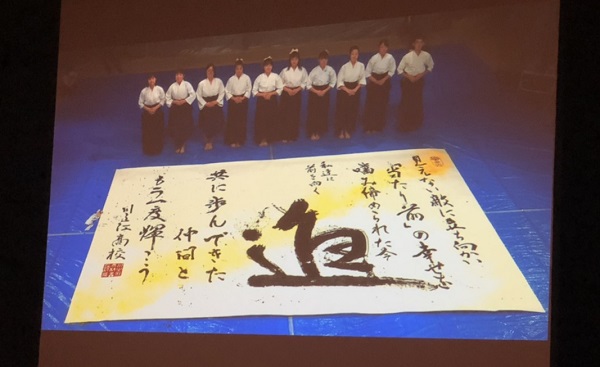 見えない敵に立ち向かい
「当たり前」の幸せを
噛み締められた今
私達は
前を向く
追
共に歩んできた
仲間と
もう一度輝こう
川之江高校